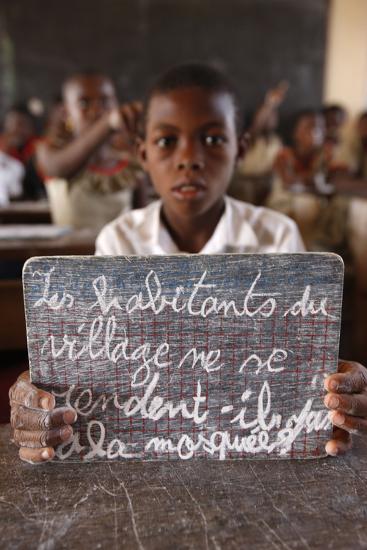 Les habitants du
village ne se
rendent-ils pas
à la mosquée?